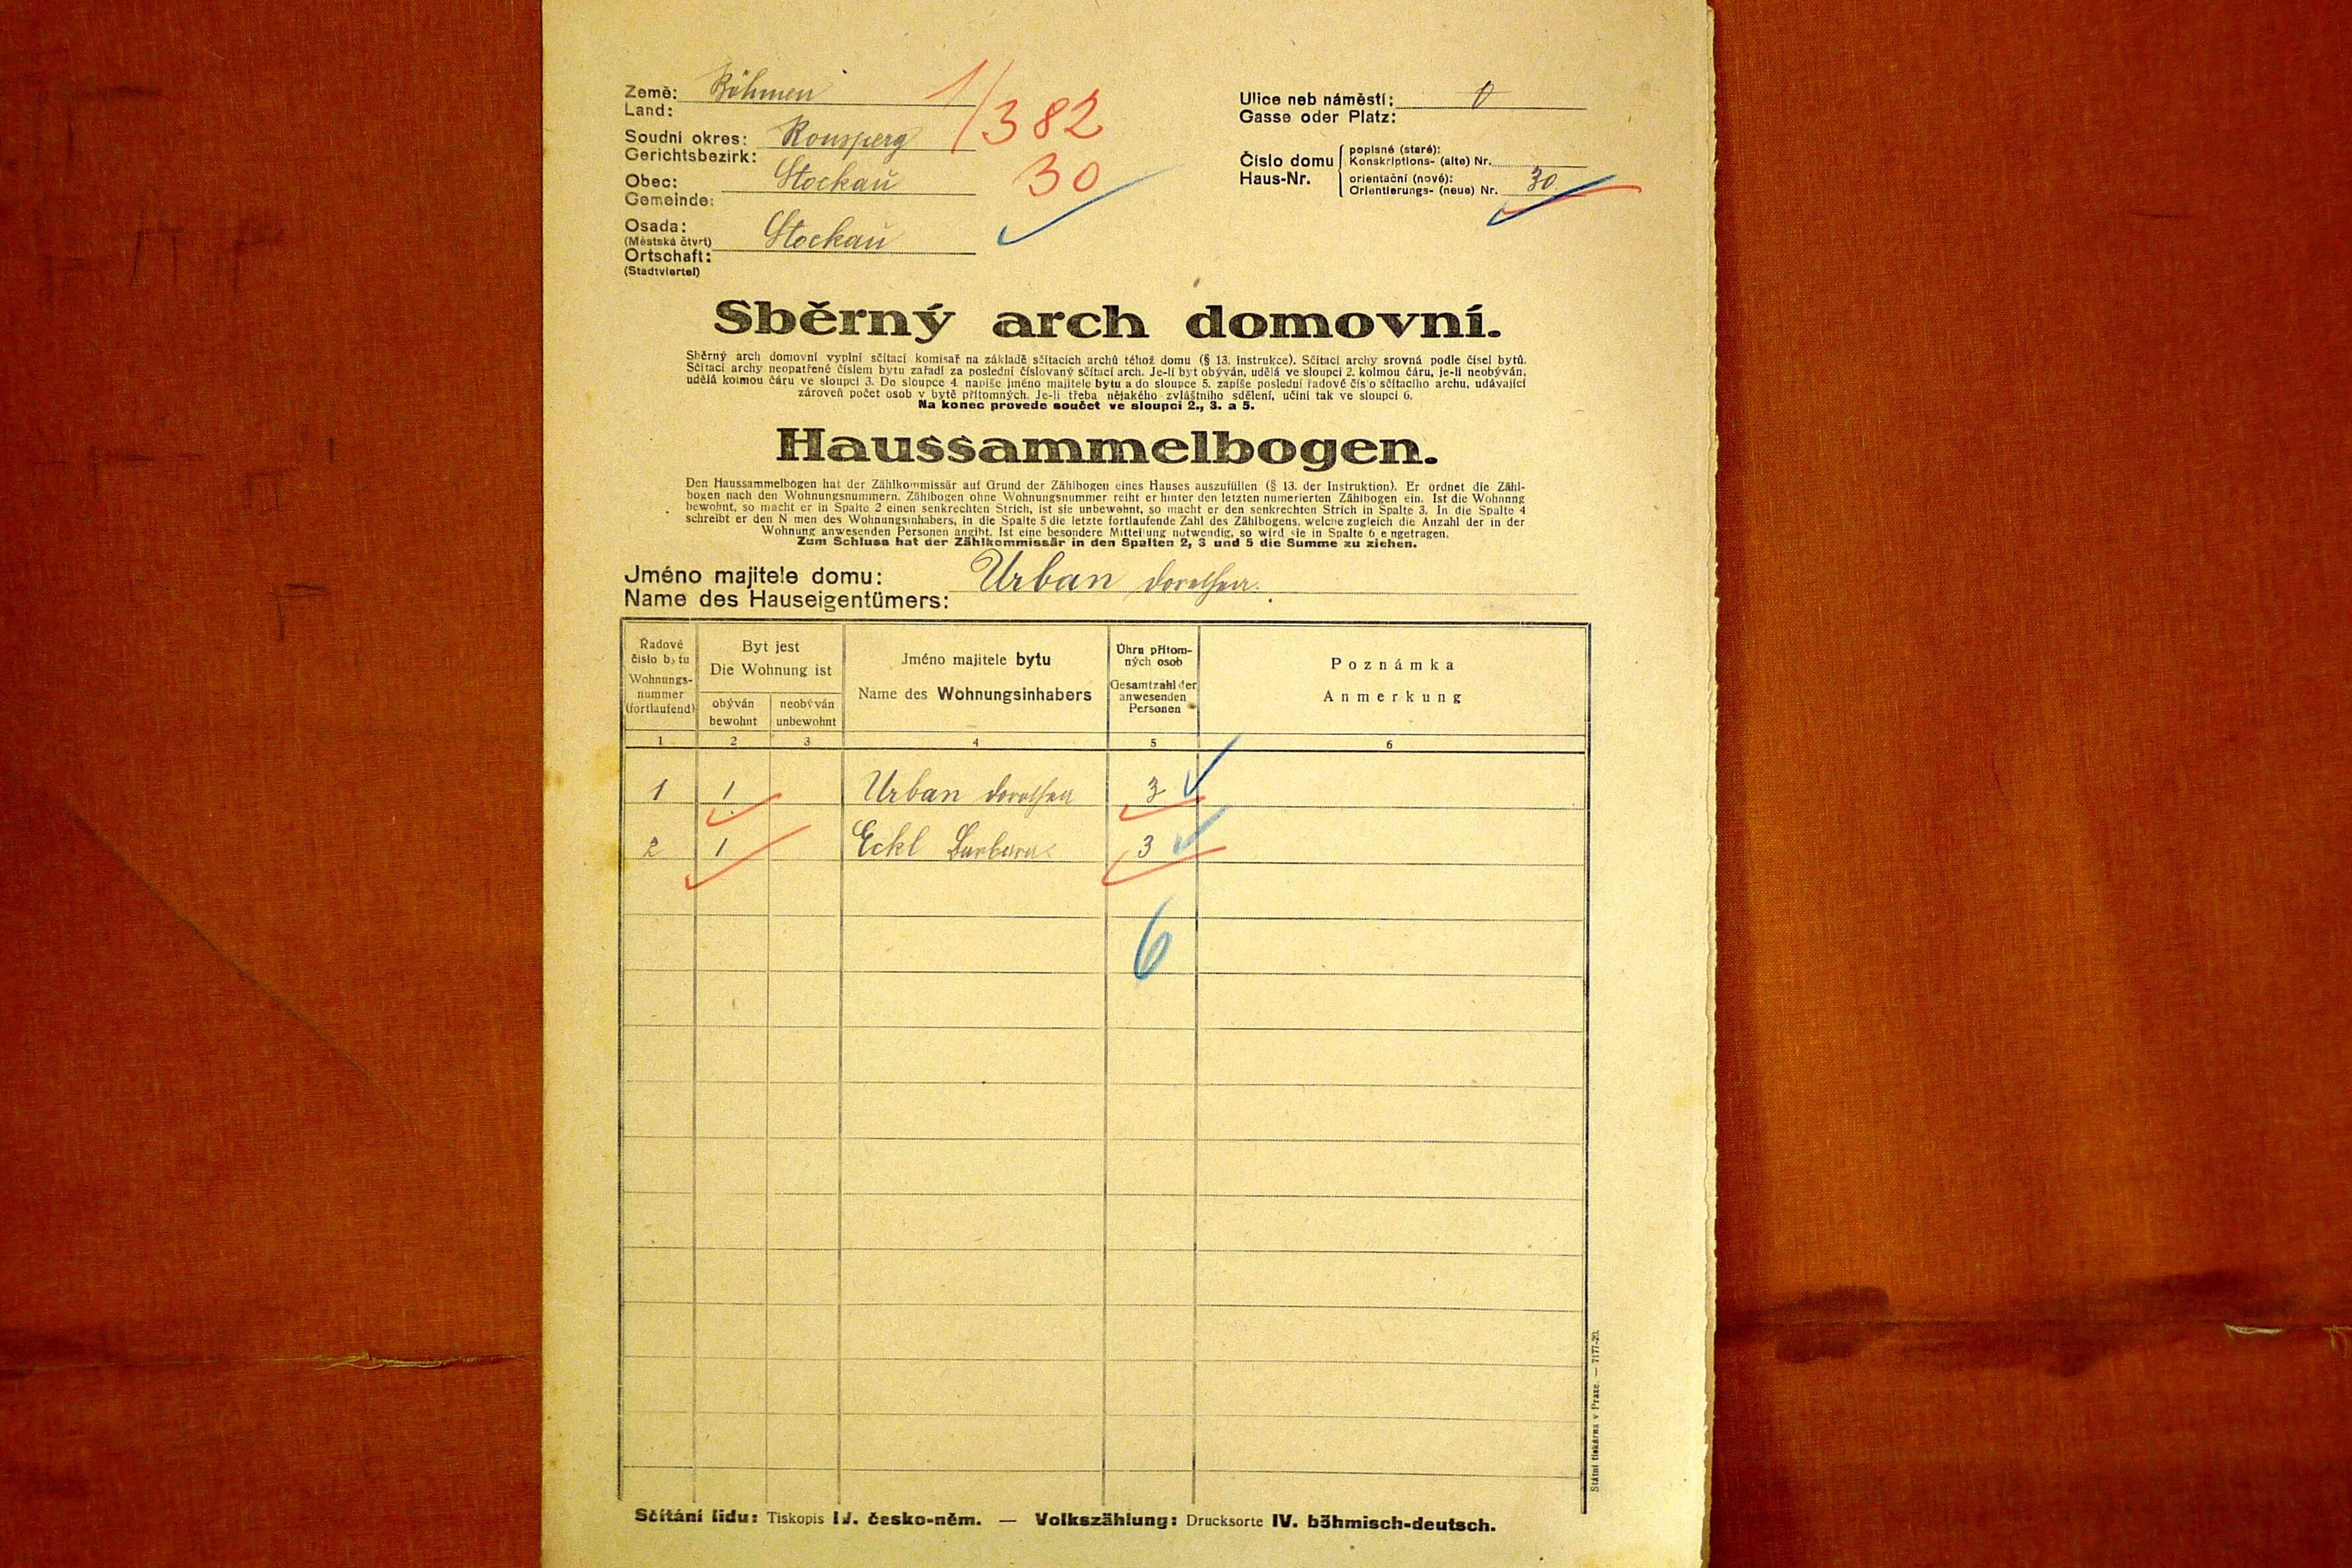 Země: Böhmen
Land:
1/382
Soudní okres: Ronsperg
Gerichtsbezirk:
Obec: Stockau
Gemeinde:
30
Osada: Stockau
(Městská čtvrt)
Ortschaft:
(Stadtviertel)
Ulice neb náměstí: 0
Gasse oder Platz:
Číslo domu popisné (staré):
Haus-Nr. Konskriptions- (alte) Nr.
orientační (nové):
Orientierungs- (neue) Nr. 30
Sběrný arch domovní.
Sběrný arch domovní vyplní sčítací komisař na základě sčítacích archů téhož domu (§ 13. instrukce). Sčítací archy srovná podle čísel bytů.
Sčítací archy neopatřené číslem bytu zařadí za poslední číslovaný sčítací arch. Je-li byt obýván, udělá ve sloupci 2. kolmou čáru, je-li neobýván,
udělá kolmou čáru ve sloupci 3. Do sloupce 4. napíše jméno majitele bytu a do sloupce 5. zapíše poslední řadové čís'o sčítacího archu, udávající
zároveň počet osob v bytě přítomných. Je-li třeba nějakého zvláštního sdělení, učiní tak ve sloupci 6.
Na konec provede součet ve sloupci 2., 3. a 5.
Haussammelbogen.
Den Haussammelbogen hat der Zählkommissär auf Grund der Zählbogen eines Hauses auszufüllen (§ 13. der Instruktion). Er ordnet die Zähl-
bogen nach den Wohnungsnummern. Zählbogen ohne Wohnungsnummer reiht er hinter den letzten numerierten Zählbogen ein. Ist die Wohnung
bewohnt, so macht er in Spalte 2 einen senkrechten Strich, ist sie unbewohnt, so macht er den senkrechten Strich in Spalte 3. In die Spalte 4
schreibt er den N men des Wohnungsinhabers, in die Spalte 5 die letzte fortlaufende Zahl des Zählbogens, welche zugleich die Anzahl der in der
Wohnung anwesenden Personen angibt. Ist eine besondere Mitteilung notwendig, so wird sie in Spalte 6 e ngetragen.
Zum Schluss hat der Zählkommissär in den Spalten 2, 3 und 5 die Summe zu ziehen.
Jméno majitele domu: Urban Dorothea.
Name des Hauseigentümers:
Řadové číslo bytu
Wohnungs-nummer (fortlaufend)
Byt jest
Die Wohnung ist
obýván
bewohnt
neobýván
unbewohnt
Jméno majitele bytu
Name des Wohnungsinhabers
Úhrn přítom-
ných osob
Gesamtzahl der
anwesenden
Personen
Poznámka
Anmerkung
1 2 3 4 5 6
1 1 Urban Dorothea 3
2 1 Eckl Barbara 3
6
Státní tiskárna v Praze. — 7177-20.
Sčítání lidu: Tiskopis IV. česko-něm. — Volkszählung: Drucksorte IV. böhmisch-deutsch.